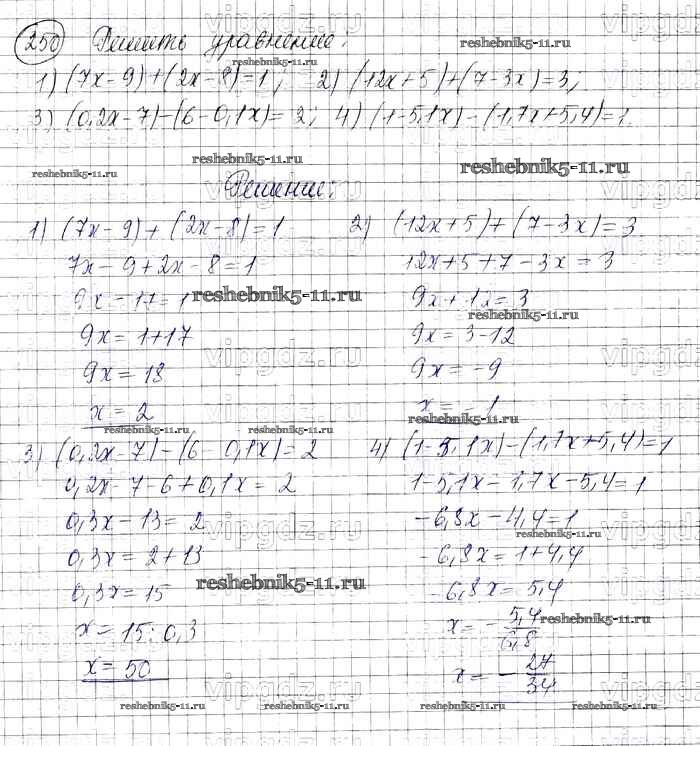 250 Решить уравнение:
1) (7x-9)+(2x-8)=1; 2) (12x+5)+(7-3x)=3;
3) (0,2x-7)-(6-0,1x)=2; 4) (1-5,1x)-(1,7x+5,4)=1.
Решение:
1) (7x-9)+(2x-8)=1
7x-9+2x-8=1
9x-17=1
9x=1+17
9x=18
x=2
2) (12x+5)+(7-3x)=3
12x+5+7-3x=3
9x+12=3
9x=3-12
9x=-9
x=-1
3) (0,2x-7)-(6-0,1x)=2
0,2x-7-6+0,1x=2
0,3x-13=2
0,3x=2+13
0,3x=15
x=15:0,3
x=50
4) (1-5,1x)-(1,7x+5,4)=1
1-5,1x-1,7x-5,4=1
-6,8x-4,4=1
-6,8x=1+4,4
-6,8x=5,4
x=-5,4/6,8
x=-27/34
reshebnik5-11.ru
vipgdz.ru